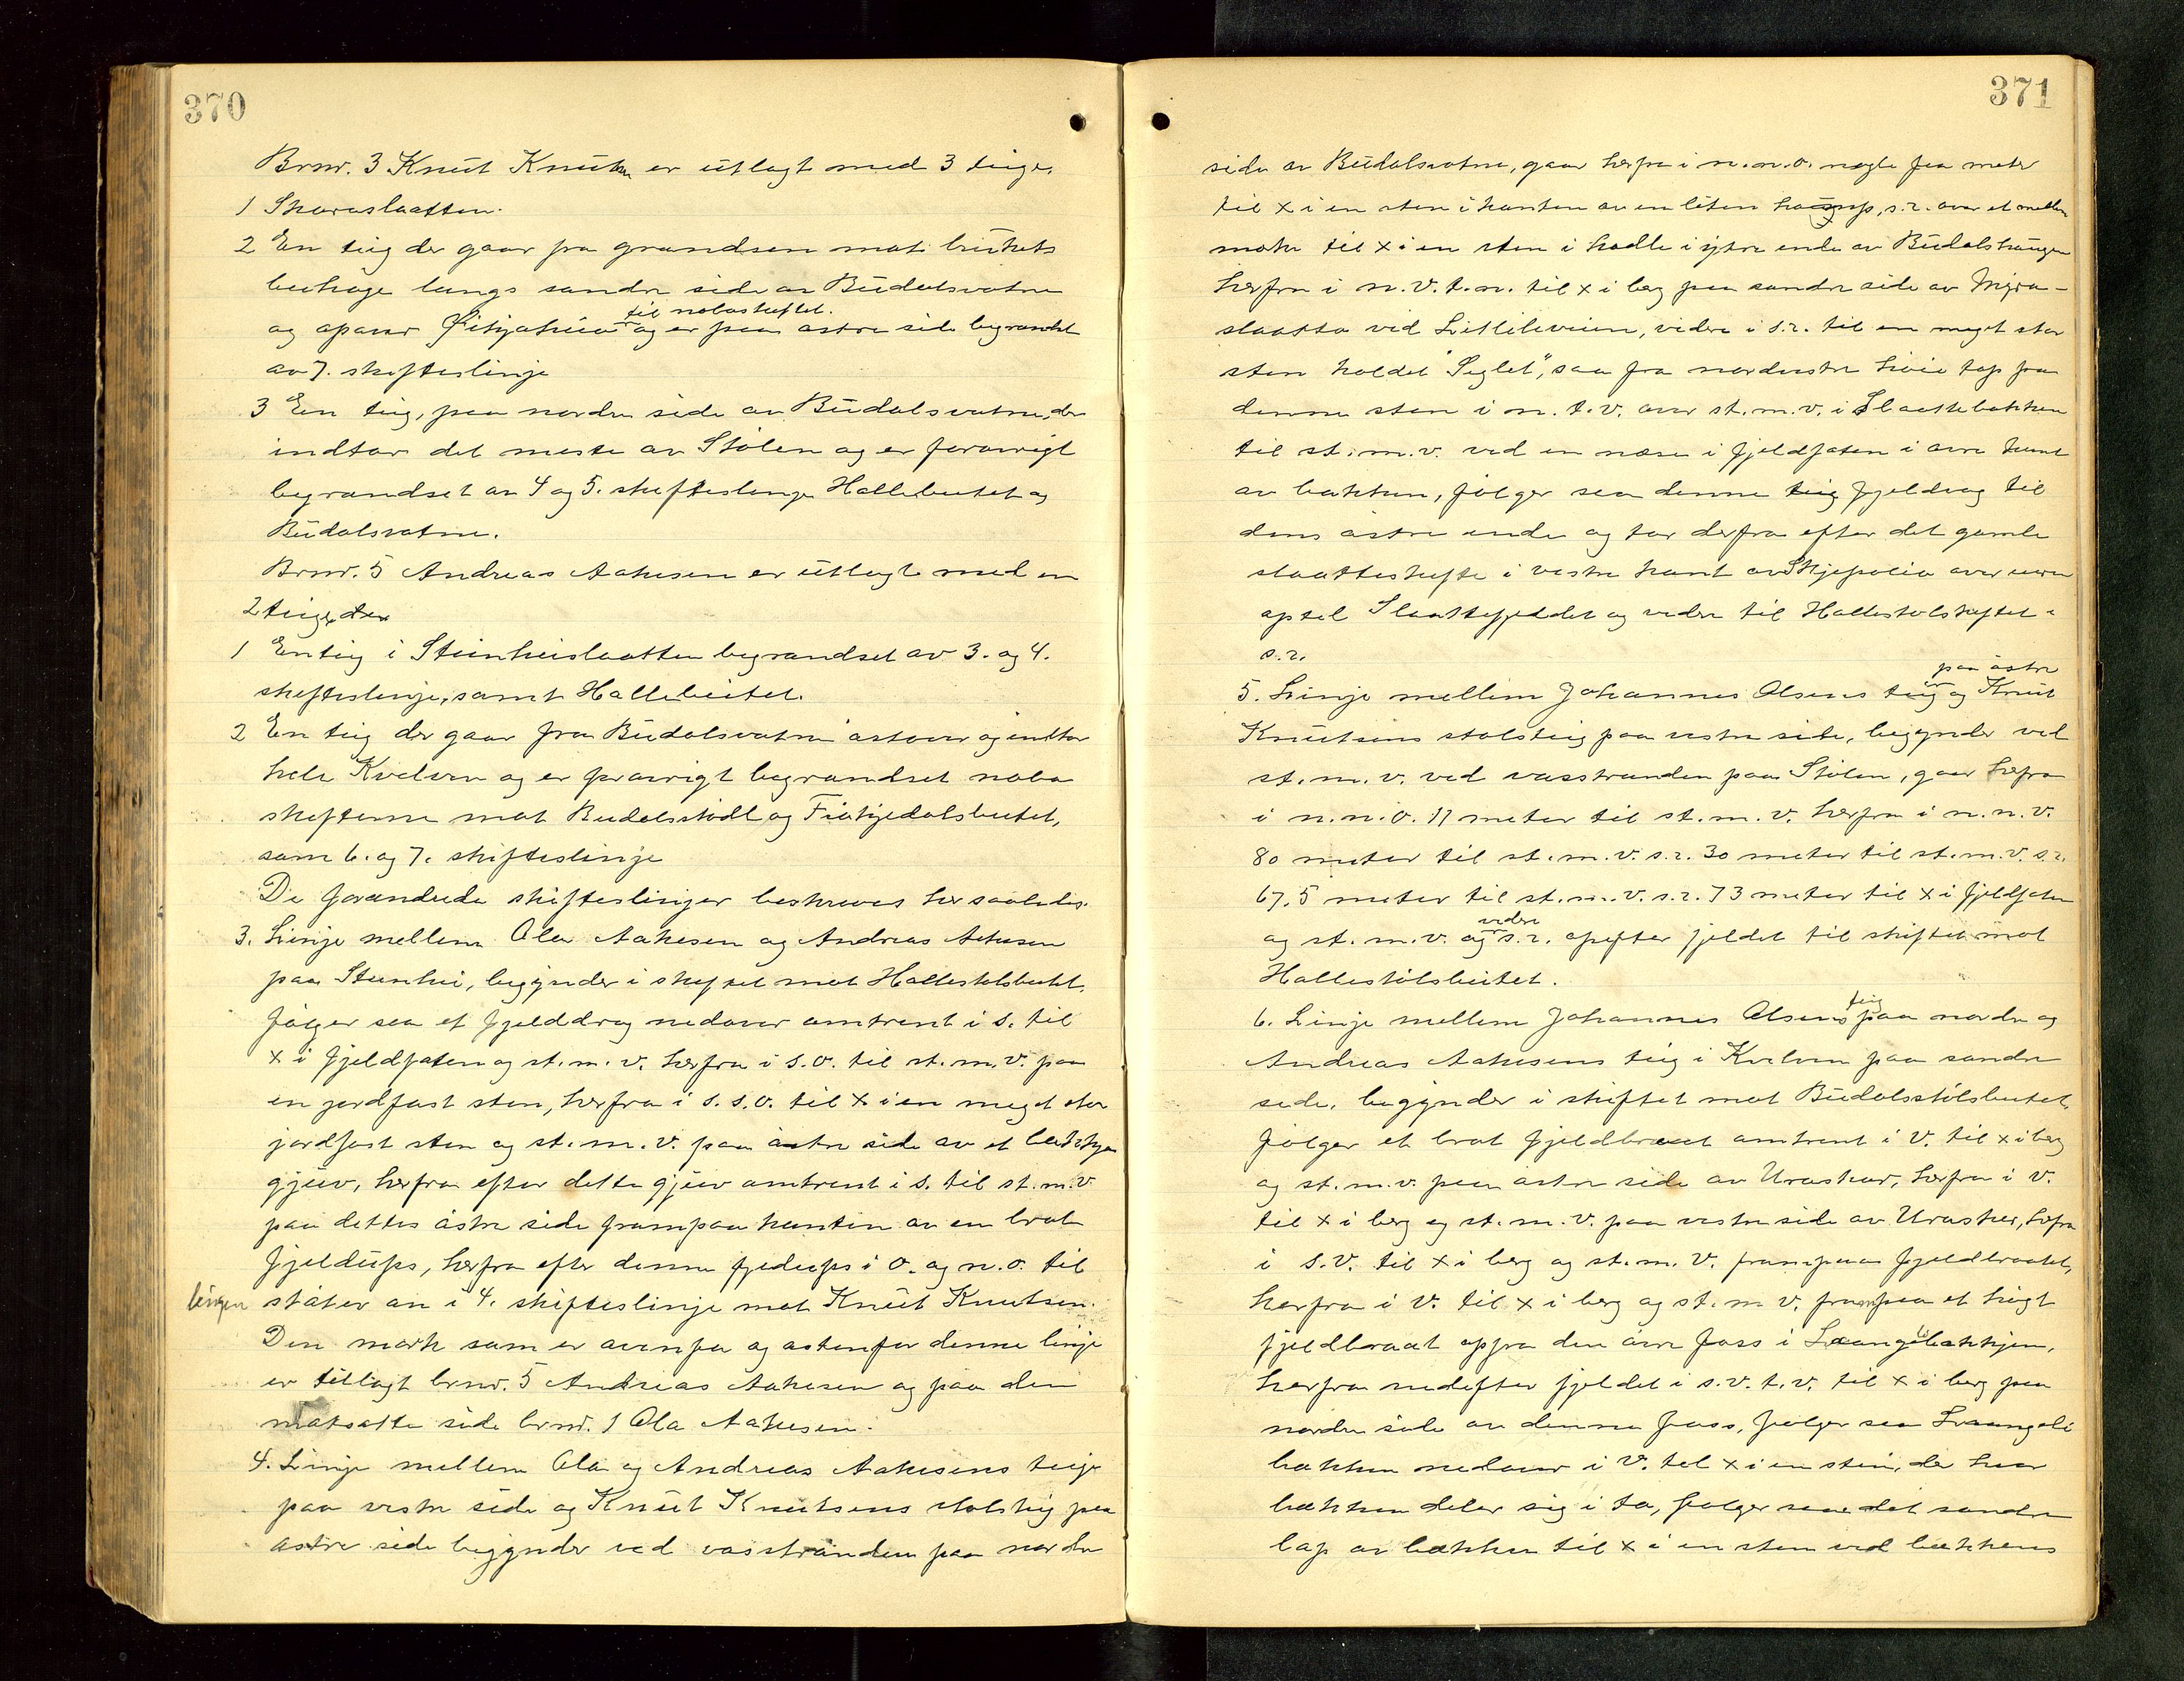 370
Brnr. 3 Knut Knutsen er utlagt med 3 teige.
1 Skoraslaatten.
2 En teig der gaar fra grændsen mot brukets
beihage langs søndre side av Budalsvatne
til naboskiftet.
og opover Fitjaheia og er paa østre side begrændset
av 7. skifteslinje
3 En teig, paa nordre side av Budalsvatne, der
indtar det meste av Stølen og er forøvrigt
begrændset av 4 og 5. skifteslinje Hallebeitet og
Budalsvatne.
Brnr. 5 Andreas Aakesen er utlagt med en
2 teige der
1 En teig i Steinheislaatten begrændset av 3. og 4.
skifteslinje, samt Hallebeitet.
2 En teig der gaar fra Budalsvatne østover og indtar
hele Kvelven og er forøvrigt begrændset nabo
skifterne mot Budalsstødl og Fiskjedalsbeitet,
som 6. og 7. skifteslinje
De forandrede skifteslinjer beskrives her saaledes.
3. Linje mellem Ola Aakesen og Andreas Aakesen
paa Steinhei, begynder i skiftet mot Hallestølsbeitet,
følger saa et fjelddrag nedover omtrent i s. til
x i fjeldfoten og st. m. v. herfra i s.o. til st. m. v. paa
en jordfast sten, herfra i s.s.o. til x i en meget stor
jordfast sten og st. m. v. paa østre side av et
gjuv, herfra efter dette gjuv omtrent i s. til st. m. v.
paa dettes østre side frampaa kanten av en brat
fjeldups, herfra efter denne fjeldups i o. og n.o. til
linjen støter an i 4. skifteslinje mot Knut Knutsen.
Den mark som er ovenfor og østenfor denne linje
er tillagt brnr. 5 Andreas Aakesen og paa den
motsatte side brnr. 1 Ola Aakesen.
4. Linje mellem Ola og Andreas Aakesens teige
paa vestre side og Knut Knutsens stølsteig paa
østre side begynder ved vasstranden paa nordre
371
side av Budalsvatne, gaar herfra i n.n.o. nogle faa meter
til x i en sten i kanten av en liten, s.r. over et mellem
til x i en sten i hadle i ytre ende av Budalshaugen
herfra i n.v.t.n. til x i berg paa søndre side av Myra-
slaatta ved Litlileveien, videre i s.r. til en meget stor
sten kaldet "Seglet", saa fra nordvestre høie top paa
denne sten i n.t.v. over st. m. v. i Slaattebakken
til st. m. v. ved en nase i fjeldfoten i øvre kant
av bakken, følger saa denne teig fjeldrag til
dens østre ende og tar derfra efter det gamle
slaatteskifte i vestre kant av over uren
op til Slaattefjeldet og videre til Hallestølskiftet i
s.r.
paa østre
5. Linje mellem Johannes Olsens teig og Knut
Knutsens stølsteig paa vestre side, begynder ved
st. m. v. ved vasstranden paa Stølen, gaar herfra
i n.n.o. 11 meter til st. m. v. herfra i n.n.v.
80 meter til st. m. v. s.r. 30 meter til st. m. v. s.r.
67,5 meter til st. m. v. s.r. 73 meter til x i fjeldfoten
videre
og st. m. v. og s.r. opefter fjeldet til skiftet mot
Hallestølsbeitet.
teig
6. Linje mellem Johannes Olsens paa nordre og
Andreas Aakesens teig i Kvelven paa søndre
side, begynder i skiftet mot Budalsstølsbeitet,
følger et brat fjeldbraat omtrent i v. til x i berg
og st. m. v. paa østre side av Uraskar, herfra i v.
til x i berg og st. m. v. paa vestre side av Uraskar, herfra
i s.v. til x i berg og st. m. v. frampaa fjeldbraatet,
herfra i v. til x i berg og st. m. v. frampaa et høgt
fjeldbraat oppfra den øvre foss i Lraangelibækkjen,
herfra nedefter fjeldet i s.v.t.v. til x i berg paa
nordre side av denne foss, følger saa Lraangeli
bækken nedover i v. til x i en sten, der hvor
bækken deler sig i to, følger saa det søndre
løp av bækken til x i en sten ved bækkens